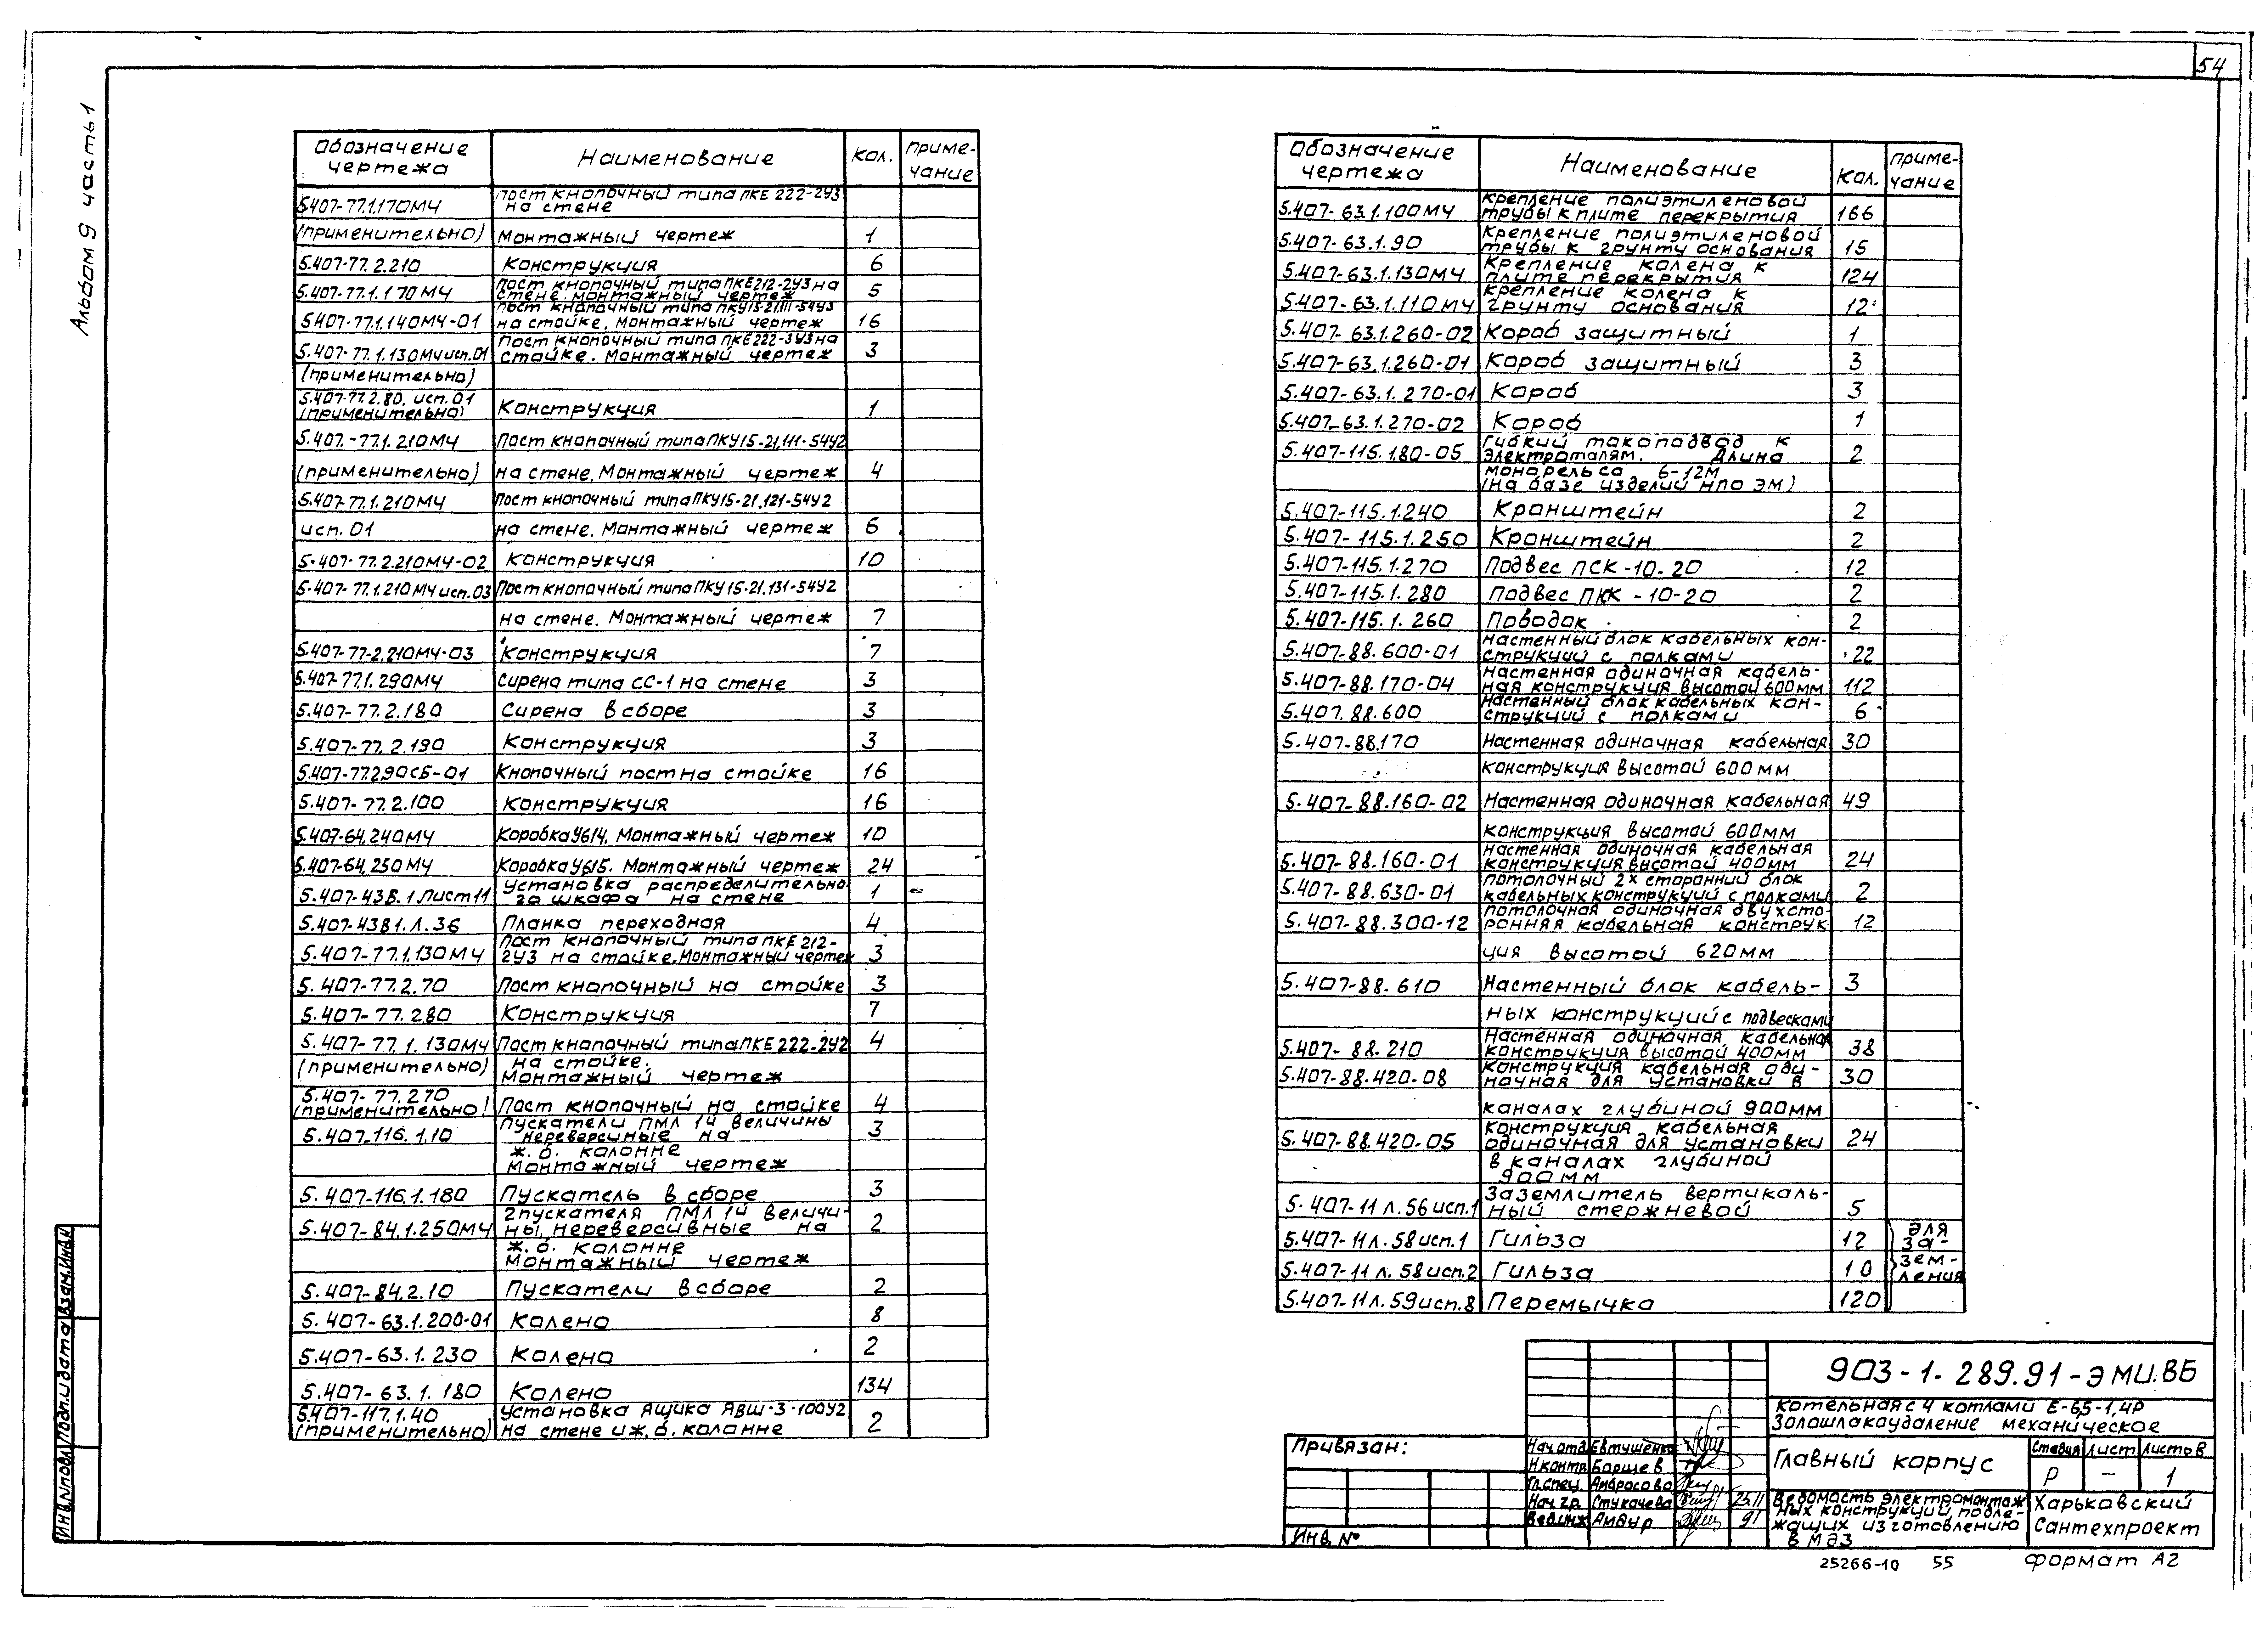 54
Альбом 9 часть 1
Обозначение чертежа Наименование Кол. Приме-чание
5.407-77.1.170МЧ Пост кнопочный типа ПКЕ 222-2У3 на стене
(применительно) Монтажный чертеж 1
5.407-77.2.210 Конструкция 6
5.407-77.1.170МЧ Пост кнопочный типа ПКЕ212-2У3 на стене. монтажный чертеж 5
5407-77.1.140МЧ-01 Пост кнопочный типа ПКУ15-21,111-54У3 на стойке. Монтажный чертеж 16
5.407-77.1.130МЧ исп.01 Пост кнопочный типа ПКЕ222-3У3 на стойке. Монтажный чертеж 3
(применительно)
5.407-77.2.80. исп.01 (применительно) Конструкция 1
5.407.-77.1.210МЧ Пост кнопочный типа ПКУ15-21,111-54У2
(применительно) на стене. Монтажный чертеж 4
5.407-77.1.210МЧ Пост кнопочный типа ПКУ15-21.121-54У2
исп.01 на стене. Монтажный чертеж 6
5.407-77.2.210МЧ-02 Конструкция 10
5.407-77.1.210МЧ исп.03 Пост кнопочный типа ПКУ15-21.131-54У2
на стене. Монтажный чертеж 7
5.407-77-2.210МЧ-03 Конструкция 7
5.407-77.1.290МЧ Сирена типа СС-1 на стене 3
5.407-77.2.180 Сирена в сборе 3
5.407-77.2.190 Конструкция 3
5.407-77.2.90СБ-01 Кнопочный пост на стойке 16
5.407-77.2.100 Конструкция 16
5.407-64.240МЧ Коробка У614. Монтажный чертеж 10
5.407-64.250МЧ Коробка У615. Монтажный чертеж 24
5.407-43В.1 Лист 11 Установка распределительно-го шкафа на стене 1
5.407-43В1.Л.36 Планка переходная 4
5.407-77.1.130МЧ Пост кнопочный типа ПКЕ 212-2У3 на стойке. Монтажный чертеж 3
5.407-77.2.70 Пост кнопочный на стойке 3
5.407-77.2.80 Конструкция 7
5.407-77.1.130МЧ Пост кнопочный типа ПКЕ 222-2У2 4
(применительно) на стойке.
Монтажный чертеж
5.407-77.270 (применительно) Пост кнопочный на стойке 4
5.407-116.1.10 Пускатели ПМЛ 1й величины нереверсивные на 3
ж.б. колонне
Монтажный чертеж
5.407-116.1.180 Пускатель в сборе 3
5.407-84.1.250МЧ 2 пускателя ПМЛ 1й величи-ны, нереверсивные на 2
ж.б. колонне
Монтажный чертеж
5.407-84.2.10 Пускатели в сборе 2
5.407-63.1.200-01 Колено 8
5.407-63.1.230 Колено 2
5.407-63.1.180 Колено 134
5.407-117.1.40 (применительно) Установка ящика ЯВШ-3-100У2 на стене и ж.б. колонне 2
Обозначение чертежа Наименование Кол. Приме-чание
5.407-63.1.100МЧ Крепление полиэтиленовой трубы к плите перекрытия 166
5.407-63.1.90 Крепление полиэтиленовой трубы к грунту основания 15
5.407-63.1.130МЧ Крепление колена к плите перекрытия 124
5.407-63.1.110МЧ Крепление колена к грунту основания 12
5.407-63.1.260-02 Короб защитный 1
5.407-63.1.260-01 Короб защитный 3
5.407-63.1.270-01 Короб 3
5.407-63.1.270-02 Короб 1
5.407-115.1.80-05 Гибкий токоподвод к электроталям. Длина 2
монорельса 6-12м
(на базе изделий НПО ЭМ)
5.407-115.1.240 Кронштейн 2
5.407-115.1.250 Кронштейн 2
5.407-115.1.270 Подвес ПСК-10-20 12
5.407-115.1.280 Подвес ПКК-10-20 2
5.407-115.1.260 Поводок 2
5.407-88.600-01 Настенный блок кабельных кон-струкций с полками 22
5.407-88.170-04 Настенная одиночная кабель-ная конструкция высотой 600мм 112
5.407.88.600 Настенный блок кабельных кон-струкций с полками 6
5.407-88.170 Настенная одиночная кабельная 30
конструкция высотой 600мм
5.407-88.160-02 Настенная одиночная кабельная 49
конструкция высотой 600мм
5.407-88.160-01 Настенная одиночная кабельная конструкция высотой 400мм 24
5.407-88.630-01 Потолочный 2х сторонний блок кабельных конструкций с полками 2
5.407-88.300-12 Потолочная одиночная двухсто-ронняя кабельная конструк 12
ция высотой 620мм
5.407-88.610 Настенный блок кабель- 3
ных конструкций с подвесками
5.407-88.210 Настенная одиночная кабельная конструкция высотой 400мм 38
5.407-88.420-08 Конструкция кабельная оди-ночная для установки в 30
каналах глубиной 900мм
5.407-88.420-05 Конструкция кабельная одиночная для установки 24
в каналах глубиной
900мм
5.407-11 Л.56 исп.1 Заземлитель вертикаль-ный стержневой 5
5.407-11 Л.58 исп.1 Гильза 12 для за-
5.407-11 Л.58 исп.2 Гильза 10 зем-ления
5.407-11 Л.59 исп.8 Перемычка 120
903-1-289.91-ЭМИ.ВБ
Котельная с 4 котлами Е-6,5-1,4Р
Золошлакоудаление механическое
Привязан:
Инв. №
Нач.отд Евтушенко
Н.контр Борщев
Гл.спец. Амбросова
Нач.гр. Стукачева 25.11
Вед.инж Амдур 91
Главный корпус
Стадия Лист Листов
Р - 1
Ведомость электромонтаж
ных конструкций подле-
жащих изготовлению
в МЭЗ
Харьковский
Сантехпроект
25266-10 55 Формат А2
Инв.№подл. Подп. и дата Взам.инв.№